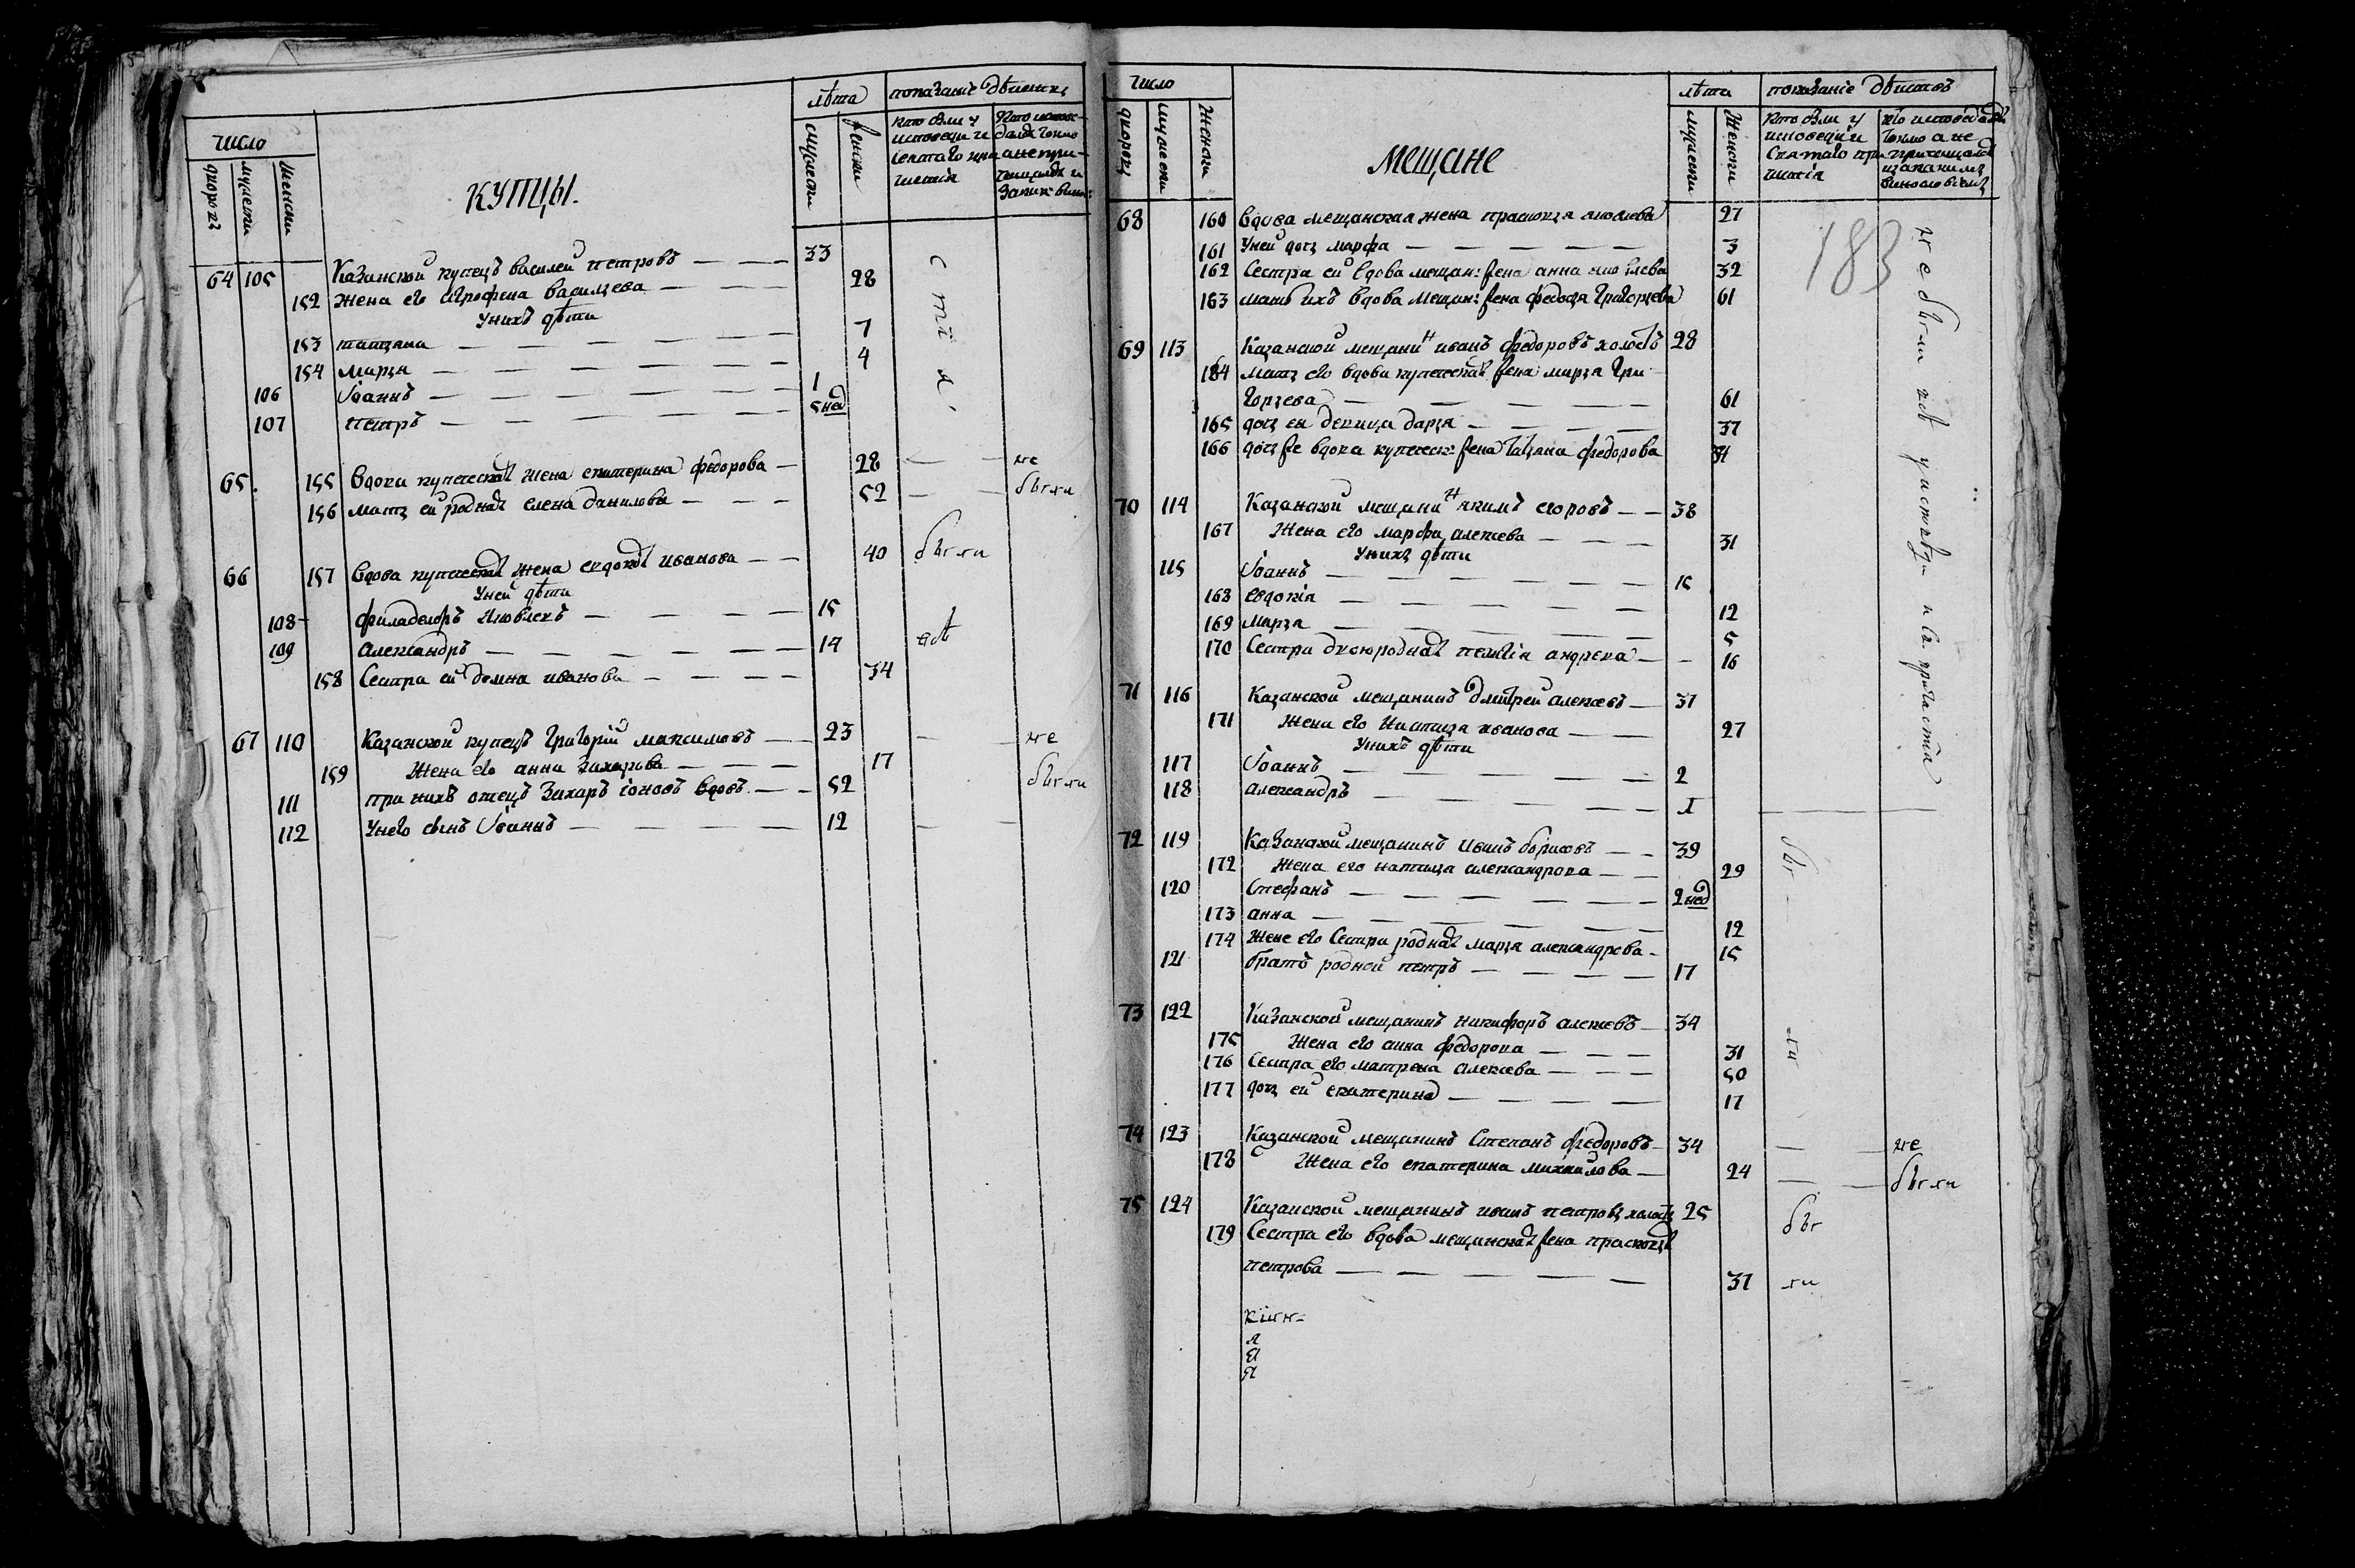 число
дворовъ
мужеска
женска
КУПЦЫ.
лѣта
мужески
женски
показанiе дѣйства
кто были у
исповеди и
святаго при
частiя
Кто испове-
дался токмо
а не при-
чащался и
за ки: вино:
64 105 Казанской купецъ василей петровъ — — 33
152 Жена его Агрофена васильева — — — 28
У нихъ дѣти
153 татьяна — — — — 7
154 марья — — — — 4
106 Iоаннъ — — — — 1
107 петръ — — — — 5 нед
с
тi
я
65. 155 Вдова купеческая жена екатерина федорова — 28 — — не
156 мать ей родная елена данилова — — — 52 — — были
66 157 Вдова купеческая жена евдокiя иванова — — 40 были
У ней дѣти
108 филаделфъ Яковлевъ — — — 15
109 Александръ — — — — 14
158 Сестра ей домна иванова — — — — 34
67 110 Казанской купецъ Григорiй максимовъ — — 23 — — не
159 Жена его анна Захарова — — — 17 были
111 при нихъ отецъ Захаръ iоновъ вдовъ — — 52
112 У него сынъ Iоаннъ — — — — 12 — —
число
дворовъ
мужески
женски
Мещане
лѣта
мужески
женски
показанiе дѣйствъ
кто были у
исповеди и
Святаго при
частiя
кто исповедался
токмо а не
причащался
и за какимъ
винословiемъ
183
68 160 Вдова мещанская жена прасковья яковлева 27
161 У ней дочь марфа — — — — — 3
162 Сестра ей вдова мещан: жена анна яковлева 32
163 мать ихъ вдова мещан: жена федосья Григорьева 61
69 113 Казанской мещанинъ иванъ федоровъ холостъ 28
164 мать его вдова купеческая жена марья Гри-
горьева — — — — 61
165 дочь ея девица дарья — — — — 37
166 дочь же вдова купеческ: жена татьяна федорова 31
70 114 Казанской мещанинъ якимъ егоровъ — — 38
167 Жена его марфа алексева — — — 31
У нихъ дѣти
115 Iоаннъ — — — — — 15
168 евдокiя — — — — 12
169 марья — — — — 5
170 Сестра двоюродная пелагiя андреева — — 16
71 116 Казанской мещанинъ дмитрей алексевъ — 37
171 Жена его Настасья иванова — — 27
У нихъ дѣти
117 Iоаннъ — — — — 2
118 александръ — — — — 1
не были
72 119 Казанской мещанинъ иванъ борисовъ — — 39
172 Жена его настасья александрова — — 29
120 Стефанъ — — — — 2 нед
173 анна — — — — 12
174 Жене его Сестра родная марья александрова — 15
121 братъ родной петръ — — — — 17
бы
73 122 Казанской мещанинъ никифоръ алексевъ — 34
175 Жена его анна федорова — — — 31
176 Сестра его матрена алексева — — — 50
177 дочь ей екатерина — — — — 17
ли
74 123 Казанской мещанинъ Степанъ федоровъ — 34 — — не
178 Жена его екатерина михайлова — 24 — — были
75 124 Казанской мещанинъ иванъ петровъ холостъ 25 бы
179 Сестра его вдова мещанская жена прасковья
петрова — — — — — 37 ли